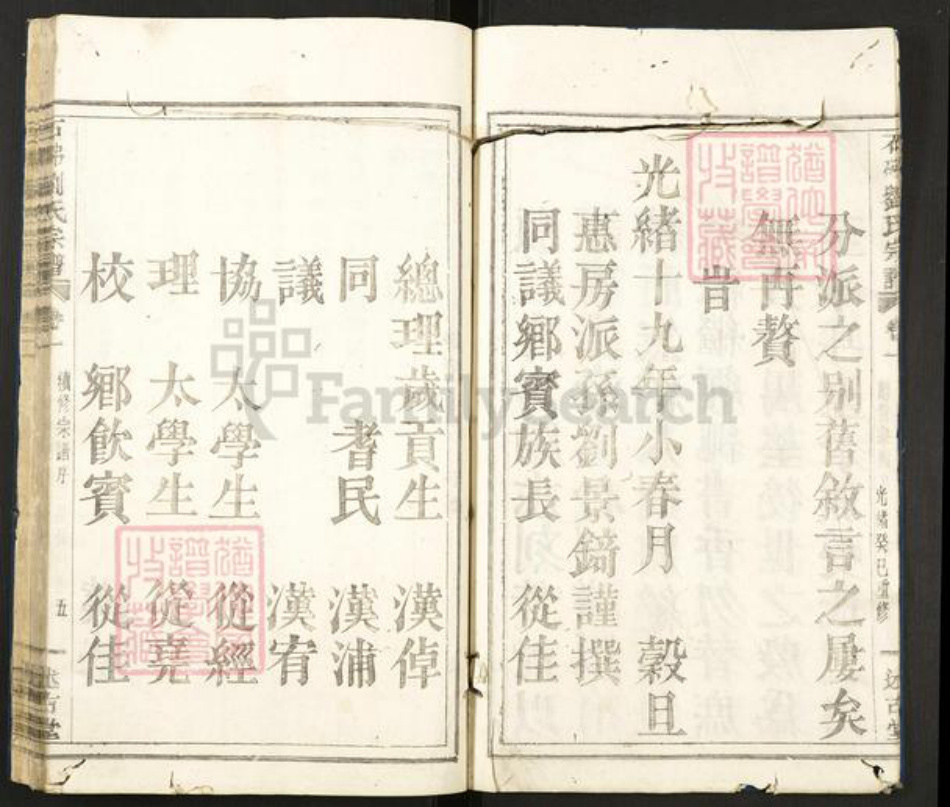 分派之别舊敘言之屡矣
無再贅
旹
光緒十九年小春月 穀旦
惠房派孫劉景錡謹撰
同議鄉賓族長 從佳
光緒癸巳重修
總理歲貢生 漢倬
同 耆民 漢浦
議 漢宥
協 太學生 從經
理 太學生 從堯
校 鄉飲賓 從佳
劉氏宗譜 卷一
續修宗譜序
五
述古堂
FamilySearch